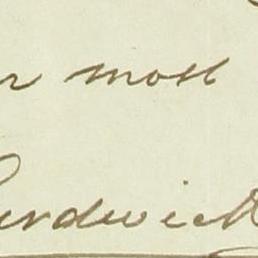 r most
urdwick